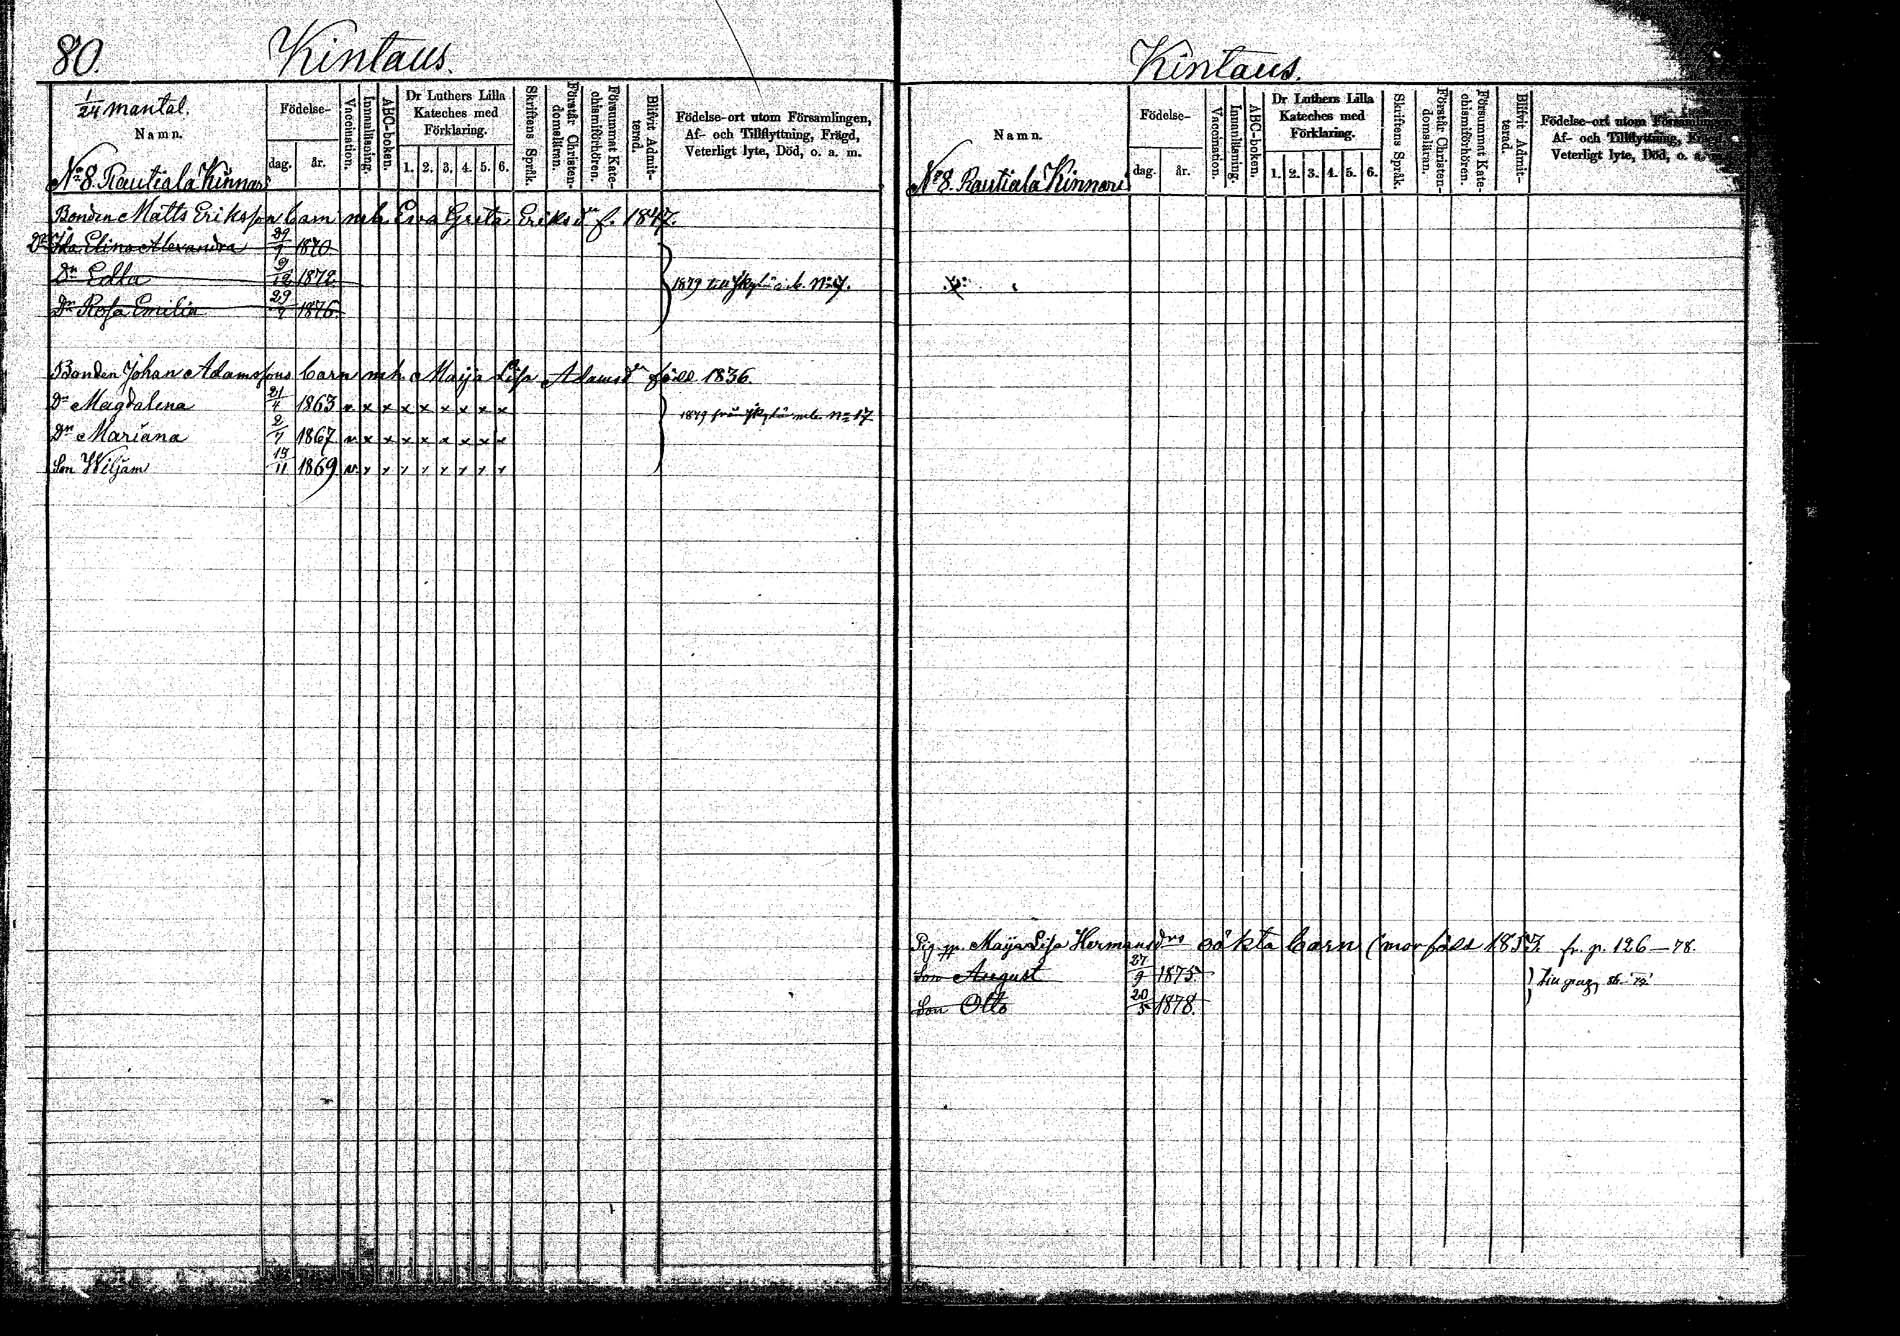 80. Kintaus.
1/24 mantal.
Namn.
Födelse-
dag. år.
Vaccination.
Innanläsning.
ABC-boken.
Dr Luthers Lilla
Kateches med
Förklaring.
1. 2. 3. 4. 5. 6.
Skriftens Språk.
Förstår Christen-
domsläran.
Försummat Kate-
chismiförhören.
Blifvit Admit-
terad.
Födelse-ort utom Församlingen,
Af- och Tillflyttning, Frägd,
Veterligt lyte, Död, o. a. m.
No 8. Rautiala Kinnari
Bonden Matts Eriksson barn m. h. Eva Greta Eriksdr f. 1847.
Dr Ida Elina Alexandra 29/9 1870
Dr Edla 9/12 1872
1879 till No 7.
Dr Rosa Emilia 29/7 1876.
Bonden Johan Adamssons barn m. h. Maija Lisa Adamsdr född 1836.
Dr Magdalena 21/4 1863 v x x x x x x x x
1879 från No 17
Dr Mariana 2/7 1867 v x x x x x x x x
Son Wiljam 19/11 1869 v x x x x x x x x
Kintaus.
Namn.
Födelse-
dag. år.
Vaccination.
Innanläsning.
ABC-boken.
Dr Luthers Lilla
Kateches med
Förklaring.
1. 2. 3. 4. 5. 6.
Skriftens Språk.
Förstår Christen-
domsläran.
Försummat Kate-
chismiförhören.
Blifvit Admit-
terad.
Födelse-ort utom
Af- och Tillflyttning,
Veterligt lyte, Död, o. a.
No 8. Rautiala Kinnari
Maija Lisa Hermansdrs oäkta barn (mor född 1857. fr. p. 126—78.
Son August 27/9 1875.
Son Otto 20/5 1878.